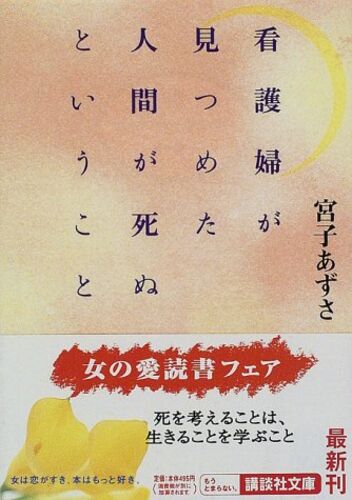 看護婦が
見つめた
人間が死ぬ
ということ
宮子あずさ
女の愛読書フェア
死を考えることは、
生きることを学ぶこと
最新刊
女は恋がすき、本はもっと好き。
定価:本体495円
(消費税が別に
加算されます)
もう
とまらない。
講談社文庫